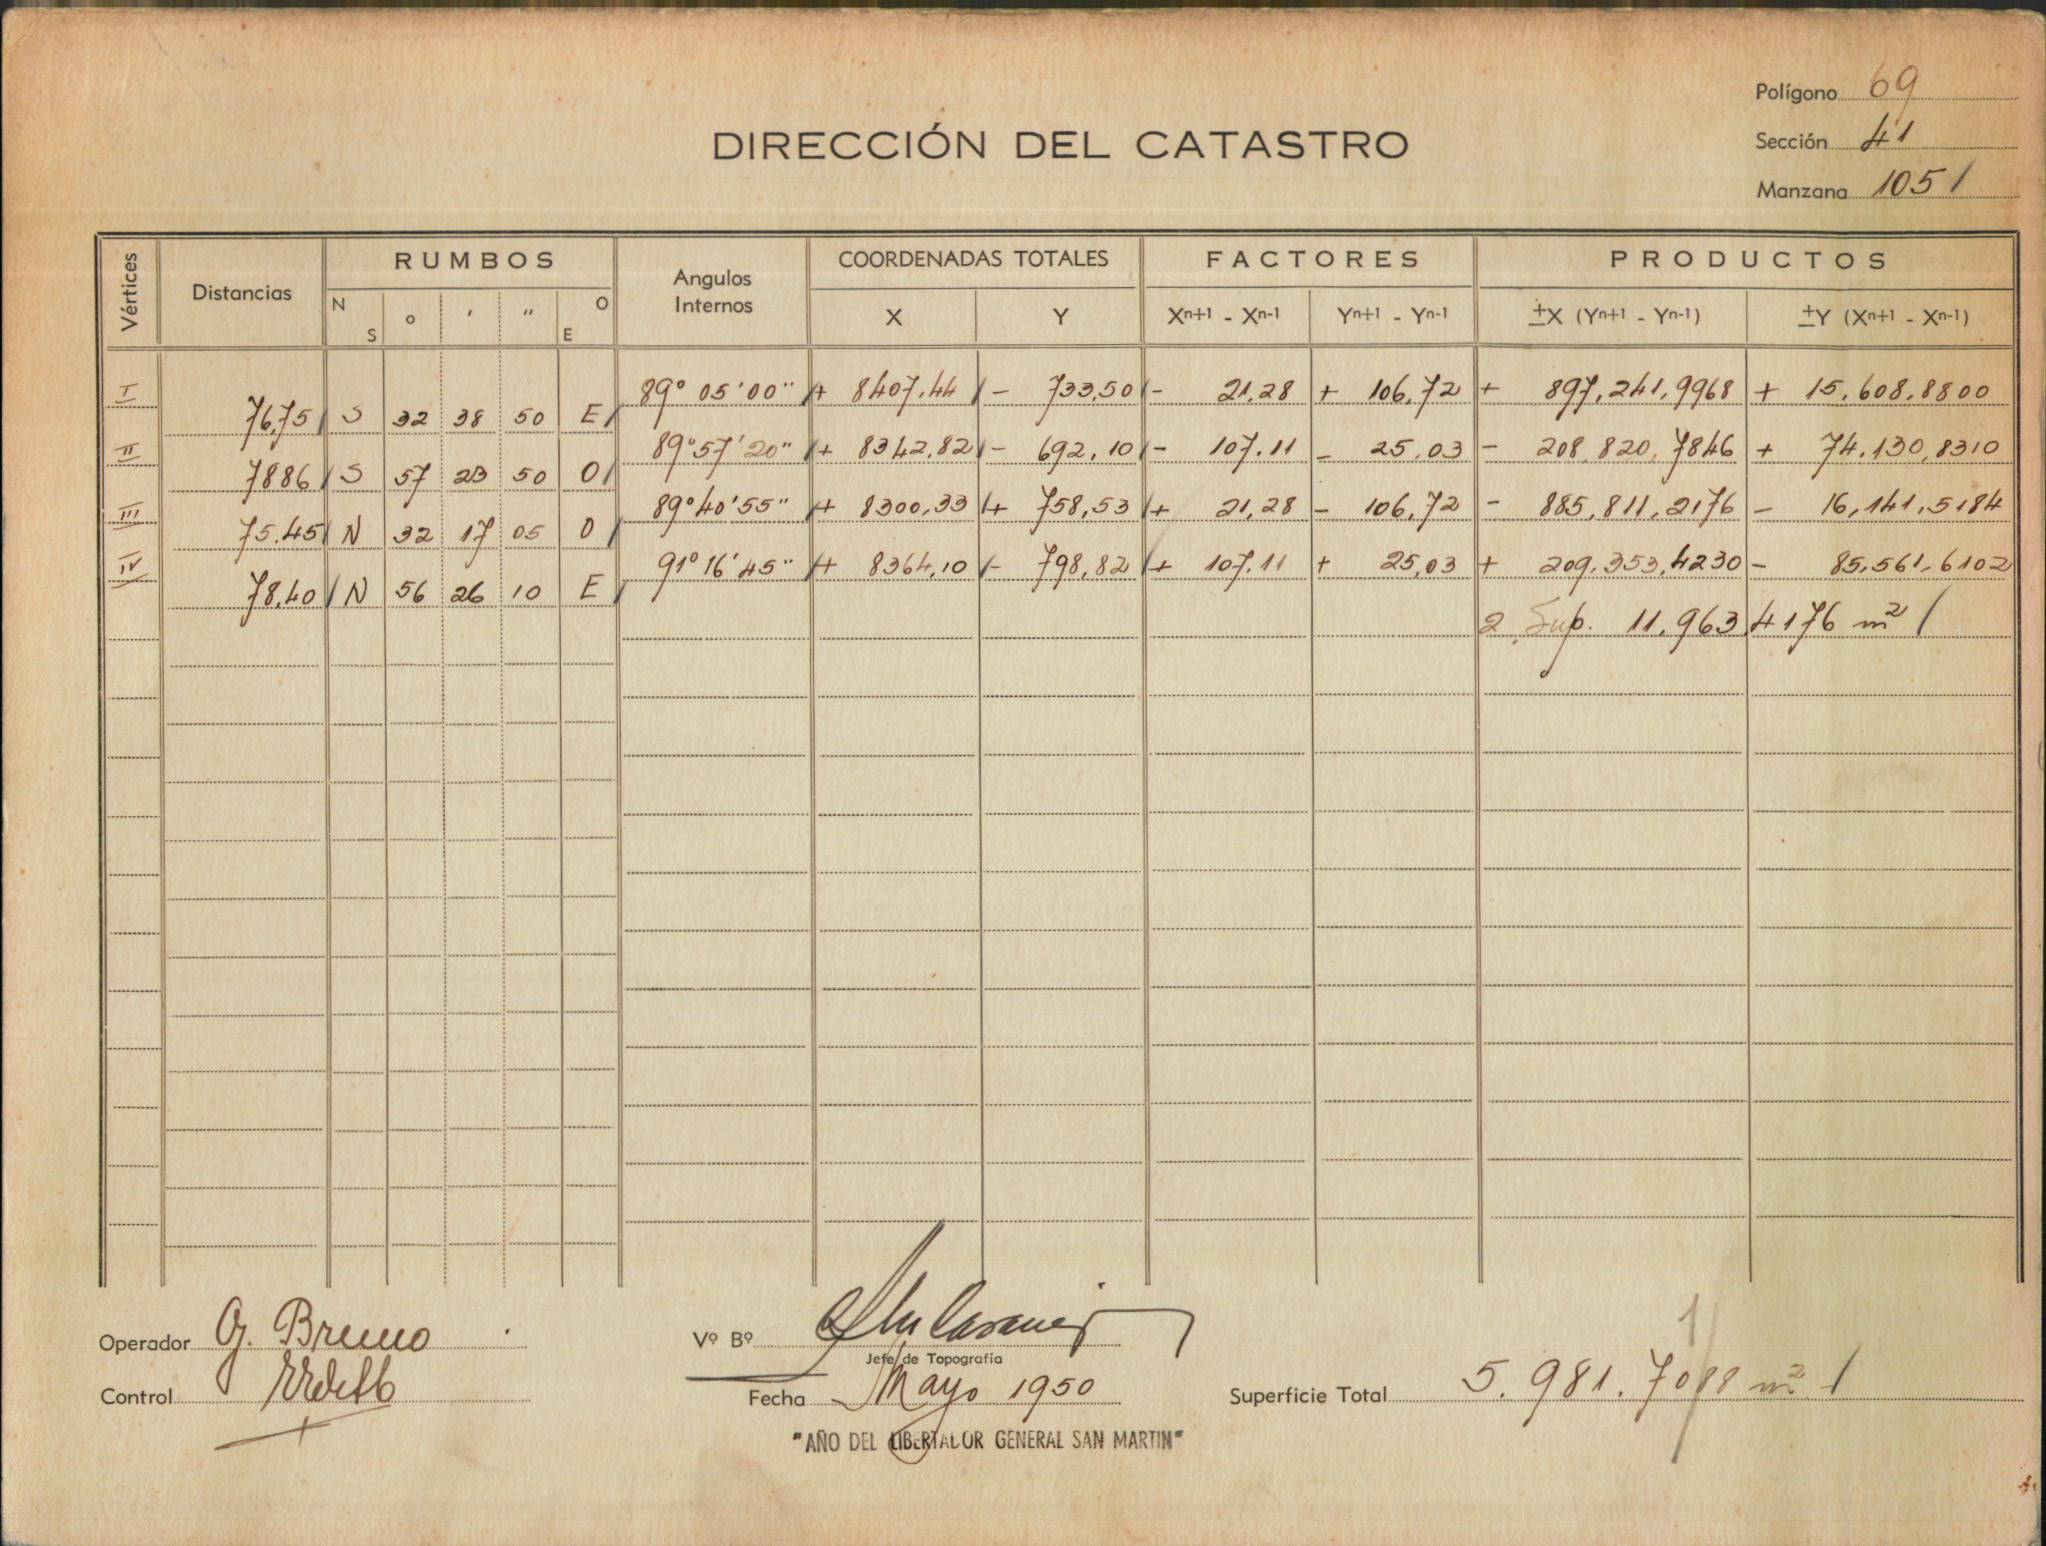 Polígono 69
DIRECCIÓN DEL CATASTRO
Sección 41
Manzana 1051
Vértices Distancias RUMBOS Angulos Internos COORDENADAS TOTALES FACTORES PRODUCTOS
N S ° ' " O E X Y Xn+1 - Xn-1 Yn+1 - Yn-1 ±X (Yn+1 - Yn-1) ±Y (Xn+1 - Xn-1)
I 89° 05' 00" + 8407,44 - 733,50 - 21,28 + 106,72 + 897,241,9968 + 15.608,8800
76,75 S 32 38 50 E
II 89° 57' 20" + 8342,82 - 692,10 - 107.11 - 25,03 - 208.820,7846 + 74.130,8310
7886 S 57 23 50 O
III 89° 40' 55" + 8300,33 + 758,53 + 21,28 - 106,72 - 885,811,2176 - 16,141,5184
75.45 N 32 17 05 O
IV 91° 16' 45" + 8364,10 - 798,82 + 107.11 + 25,03 + 209.353,4230 - 85.561,6102
78,40 N 56 26 10 E
2 Sup. 11.963,4176 m²
Operador G. Bruno
Vº Bº
Jefe de Topografía
Control
Fecha Mayo 1950
Superficie Total 5.981.7088 m²
"AÑO DEL LIBERTADOR GENERAL SAN MARTIN"